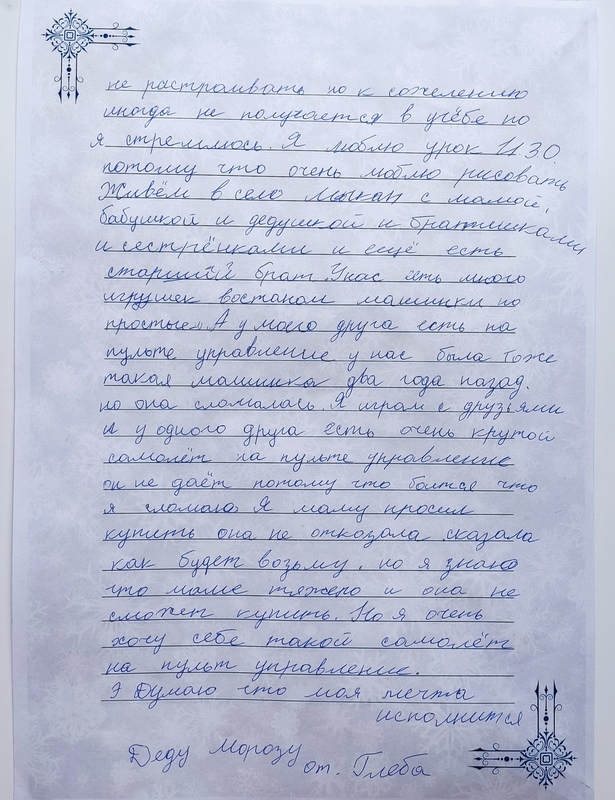 не растраивать но к сожелению
иногда не получается в учёбе но
я стремлюсь. Я люблю урок ИЗО.
потому что очень люблю рисовать
Живём в село Мыкан с мамой,
бабушкой и дедушкой и братишками
и сестрёнками и ещё есть
старший брат. Унас есть много
игрушек востаном машинки но
простые. А у моего друга есть на
пульте управление у нас была тоже
такая машинка два года назад.
но она сломалась. Я играю с друзьями
и у одного друга есть очень крутой
самолёт на пульте управление
он не даёт потому что боится что
я сломаю. Я маму просил
купить она не отказала сказала
как будет возьму. но я знаю
что маме тяжело и она не
сможет купить. Но я очень
хочу себе такой самолёт
на пульт управление.
Я Думаю что моя мечта
исполнится
Деду Морозу
от. Глеба